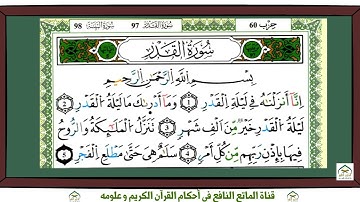 حِزْب 60
سُورَةُ القَدْرِ 97
سُورَةُ البَيِّنَةِ 98
سُورَةُ الْقَدْرِ
بِسْمِ اللَّهِ الرَّحْمَٰنِ الرَّحِيمِ
إِنَّا أَنزَلْنَٰهُ فِى لَيْلَةِ الْقَدْرِ 1 وَمَا أَدْرَىٰكَ مَا لَيْلَةُ الْقَدْرِ 2
لَيْلَةُ الْقَدْرِ خَيْرٌ مِّنْ أَلْفِ شَهْرٍ 3 تَنَزَّلُ الْمَلَٰئِكَةُ وَالرُّوحُ
فِيهَا بِإِذْنِ رَبِّهِم مِّن كُلِّ أَمْرٍ 4 سَلَٰمٌ هِىَ حَتَّىٰ مَطْلَعِ الْفَجْرِ 5
قناة الماتع النافع في أحكام القرآن الكريم وعلومه